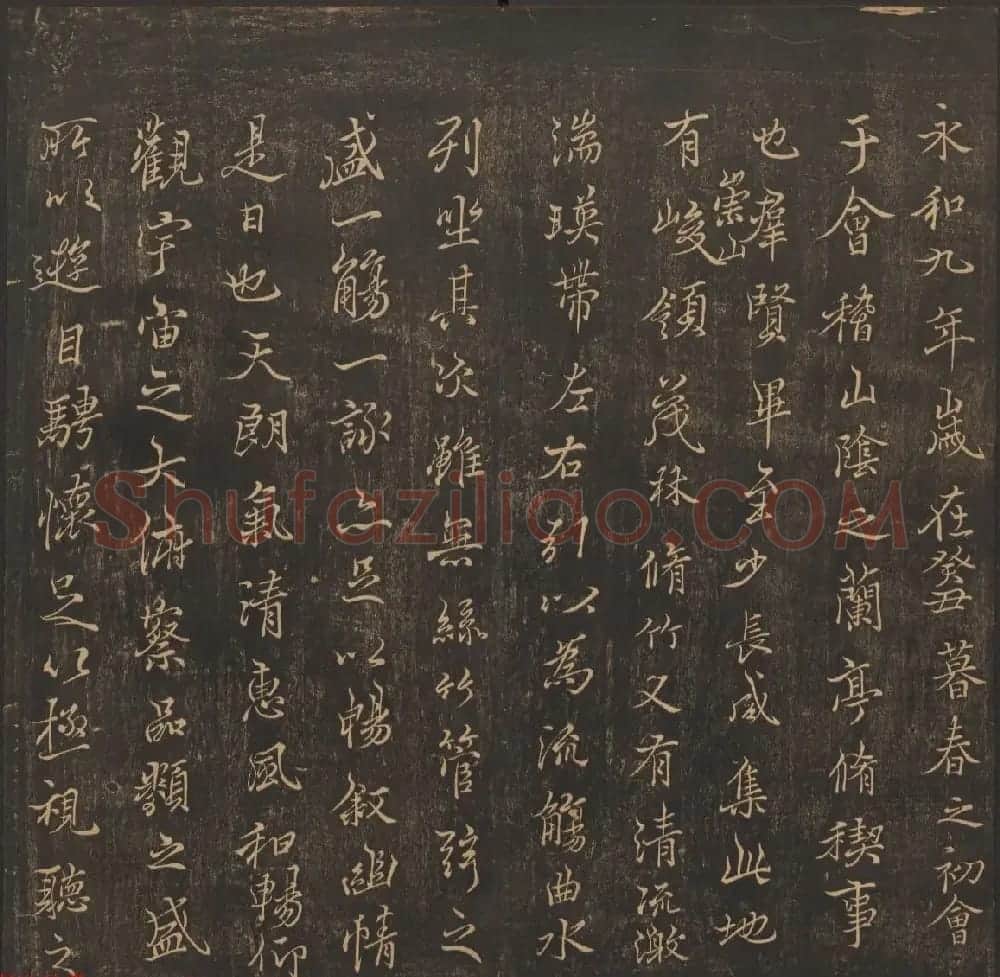 永和九年歲在癸丑暮春之初會
于會稽山陰之蘭亭脩稧事
也羣賢畢至少長咸集此地
有崇山峻領茂林脩竹又有清流激
湍暎帶左右引以為流觴曲水
列坐其次雖無絲竹管弦之
盛一觴一詠亦足以暢敘幽情
是日也天朗氣清惠風和暢仰
觀宇宙之大俯察品類之盛
所以遊目騁懷足以極視聽之
Shufaziliao.COM